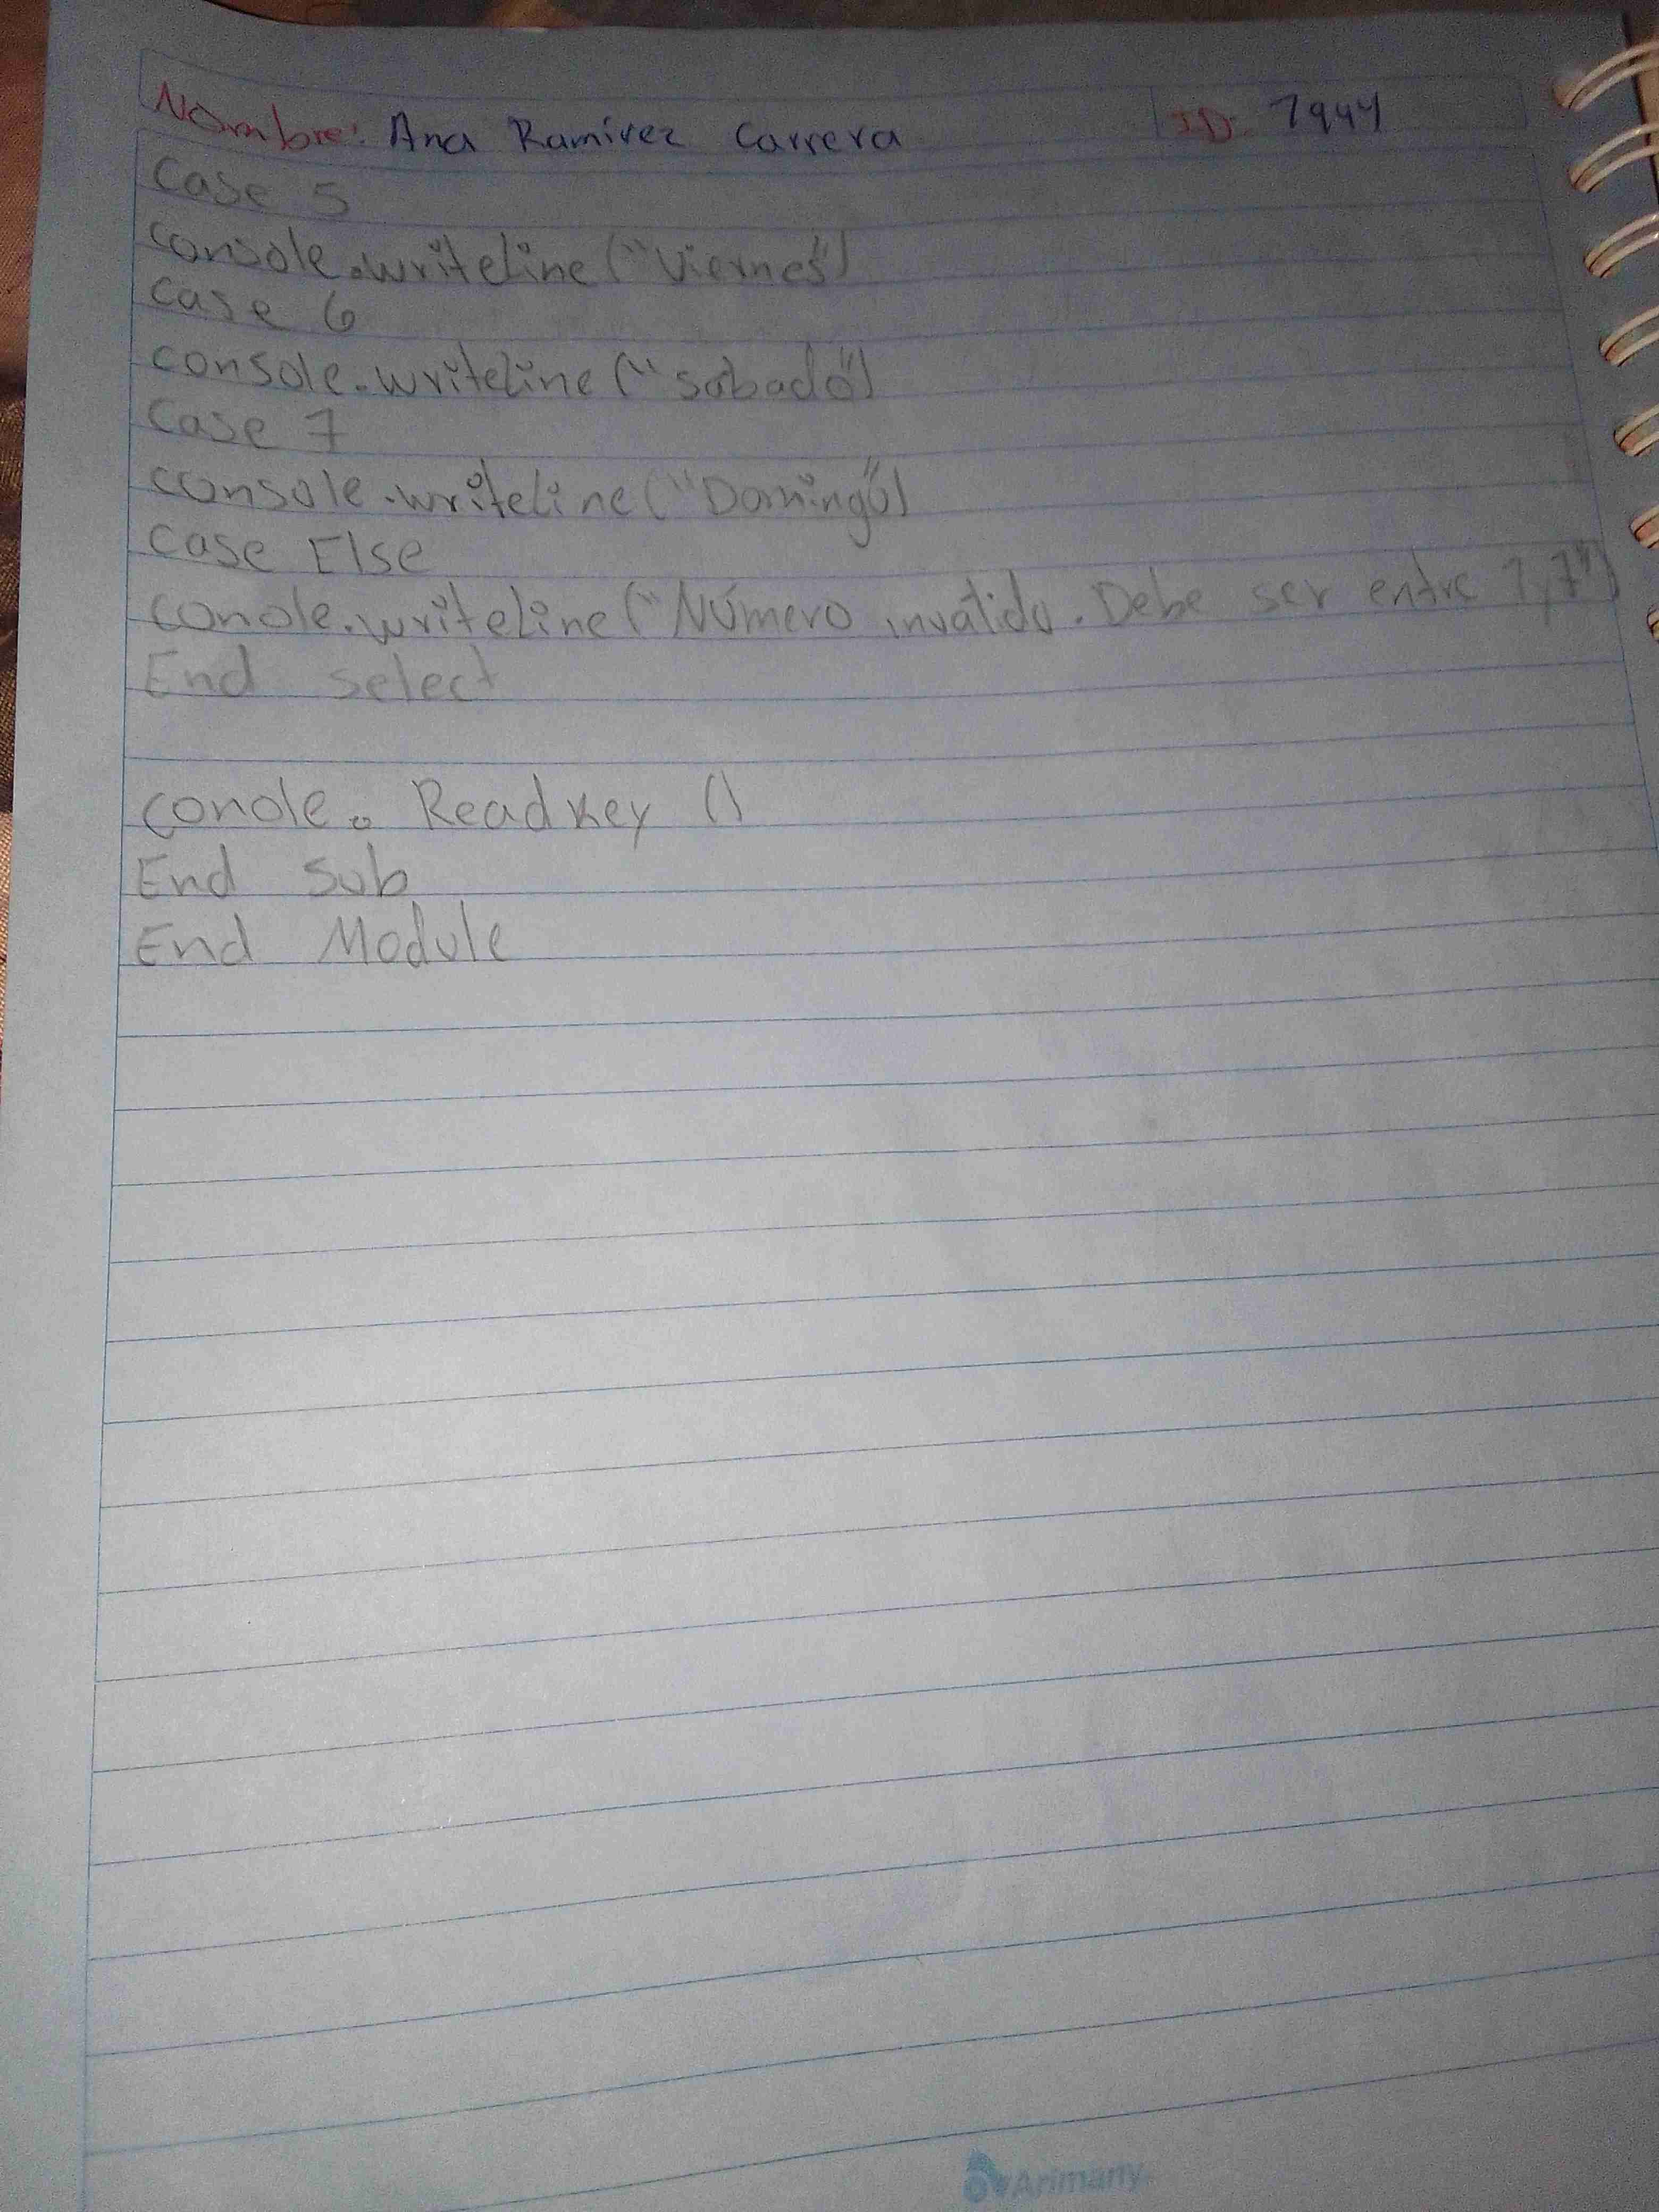 Nombre: Ana Ramírez Carrera ID: 7944
Case 5
console.writeline ("Viernes")
case 6
console.writeline ("sabado")
case 7
console.writeline ("Domingo")
case Else
conole.writeline ("Número inválido. Debe ser entre 1,7")
End select
conole. Readkey ()
End Sub
End Module
Arimany